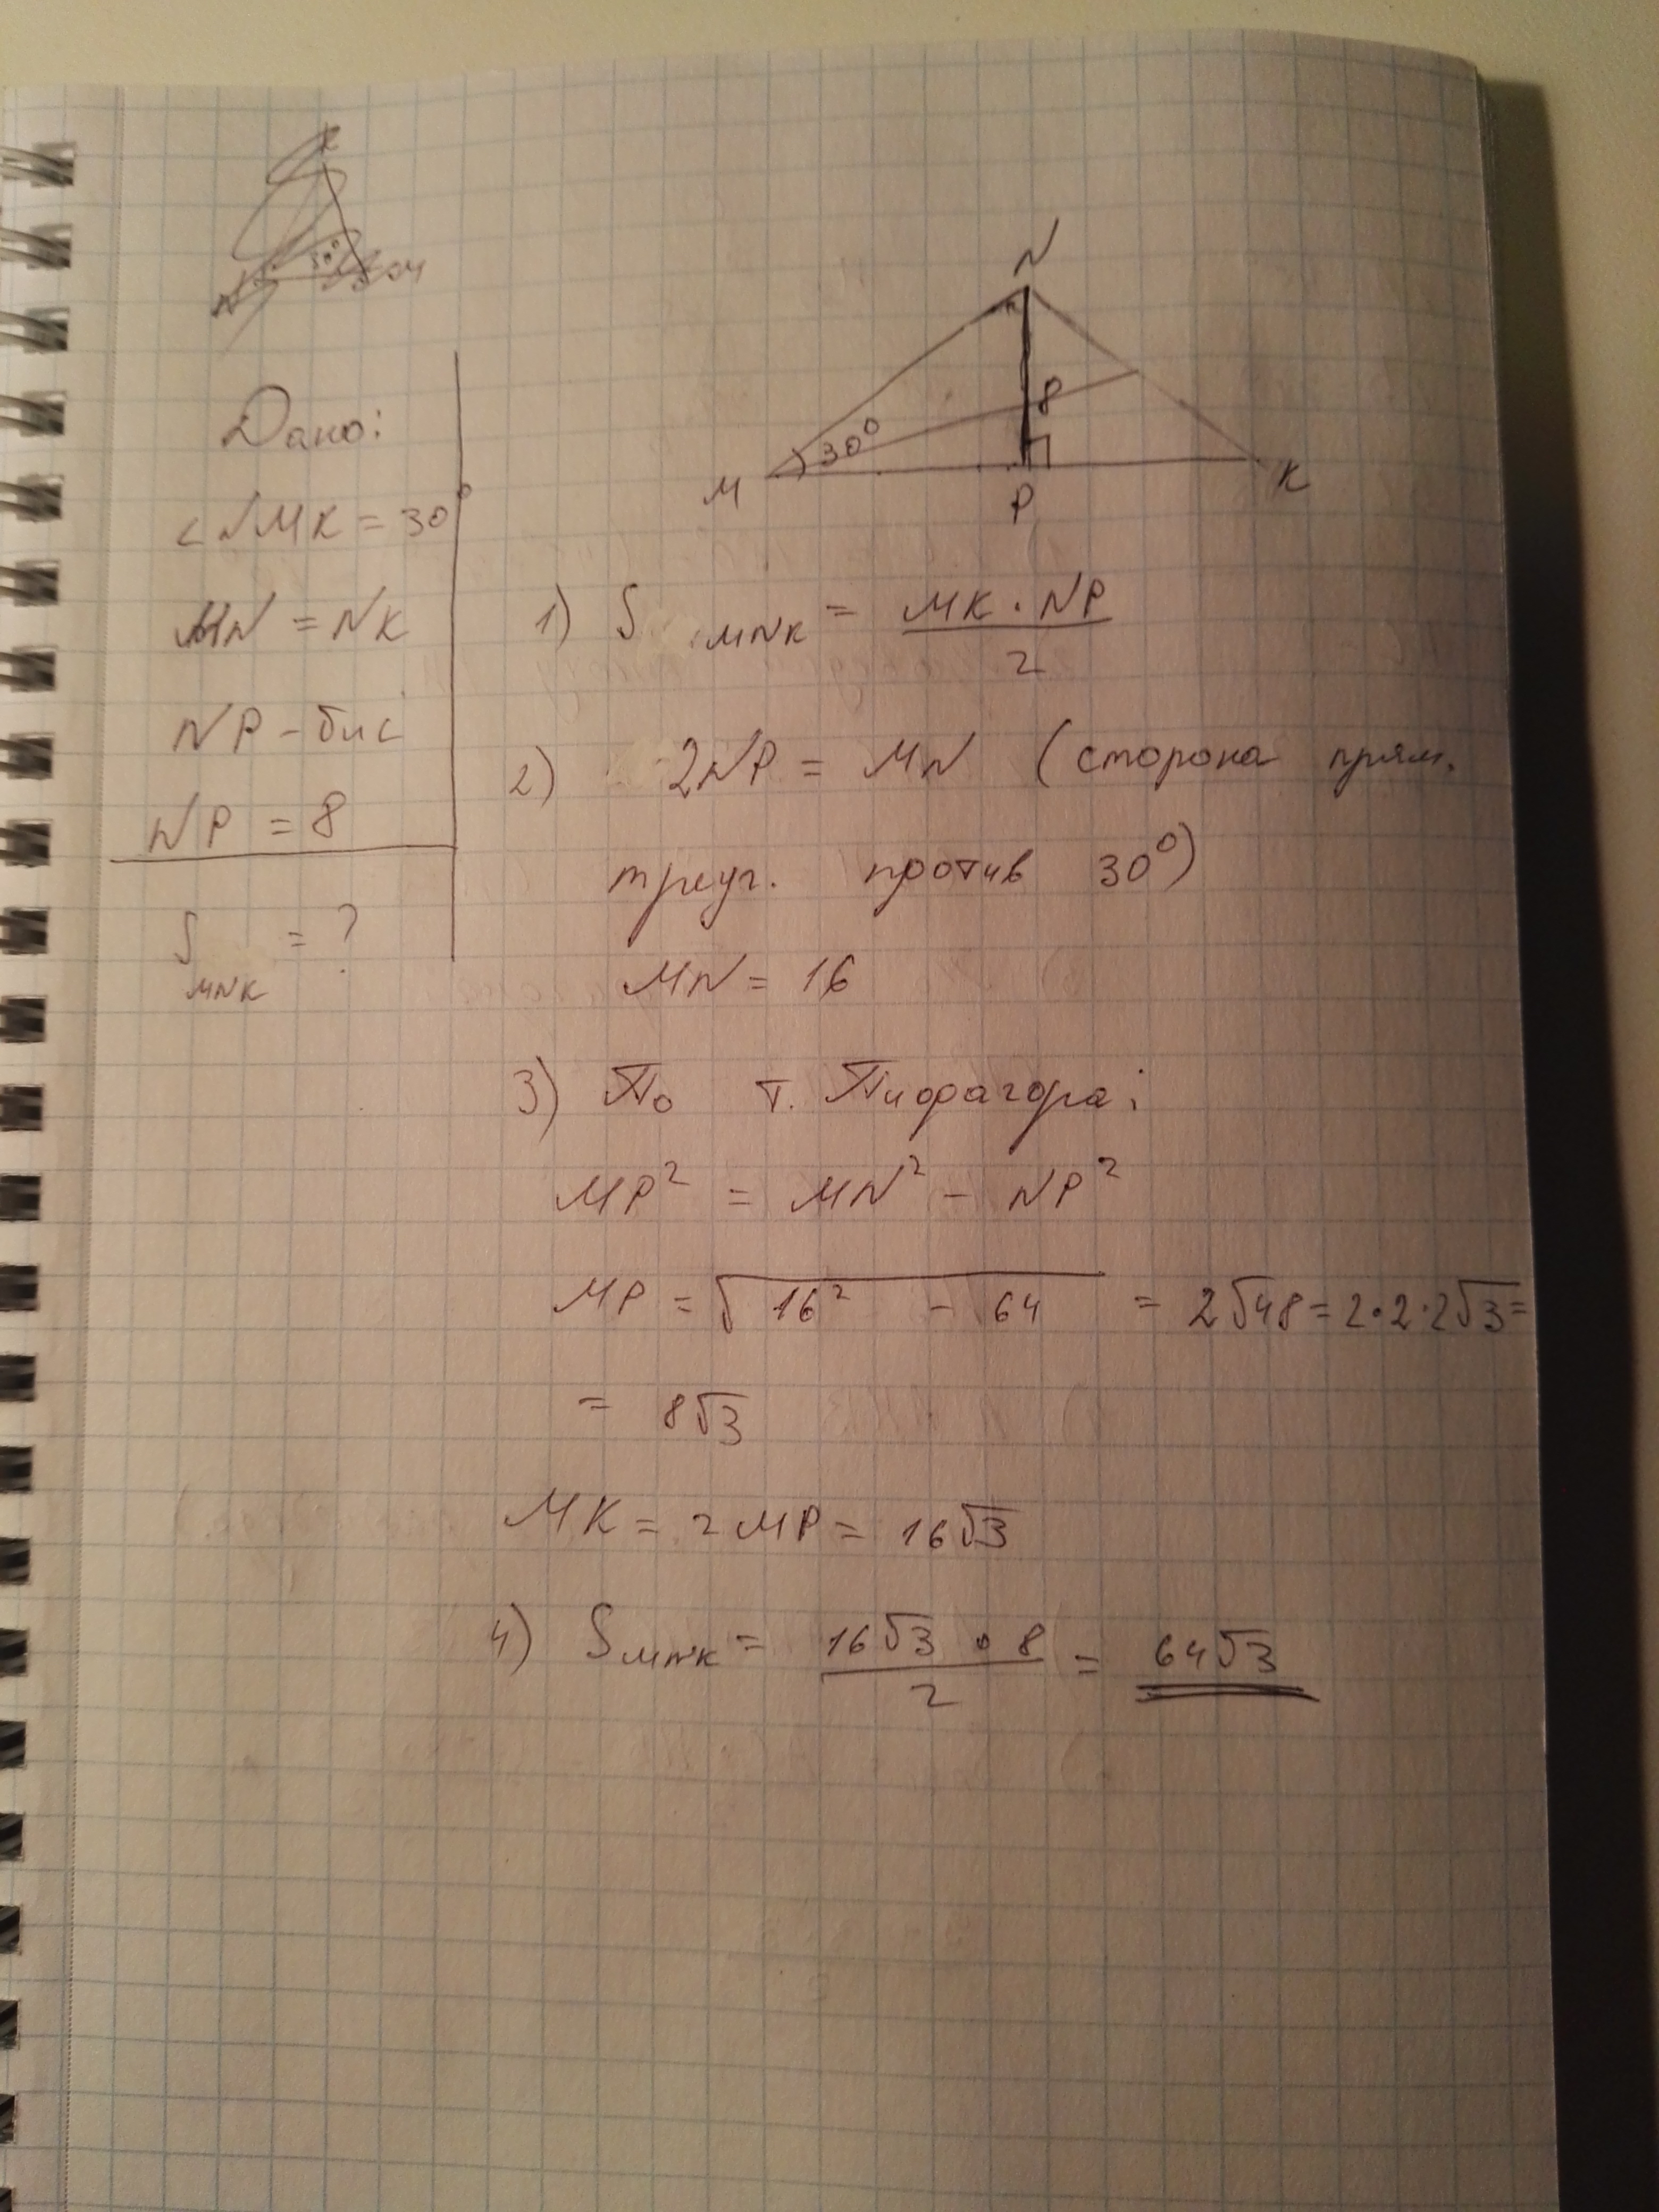 N
8
30°
M
P
K
Дано:
<NMK = 30°
MN = NK
NP - бис
NP = 8
S MNK = ?
1) S MNK = MK · NP / 2
2) 2NP = MN (сторона прям.
треуг. против 30°)
MN = 16
3) По т. Пифагора:
MP² = MN² - NP²
MP = √16² - 64 = 2√48 = 2·2·2√3 =
= 8√3
MK = 2MP = 16√3
4) S MNK = 16√3 · 8 / 2 = 64√3